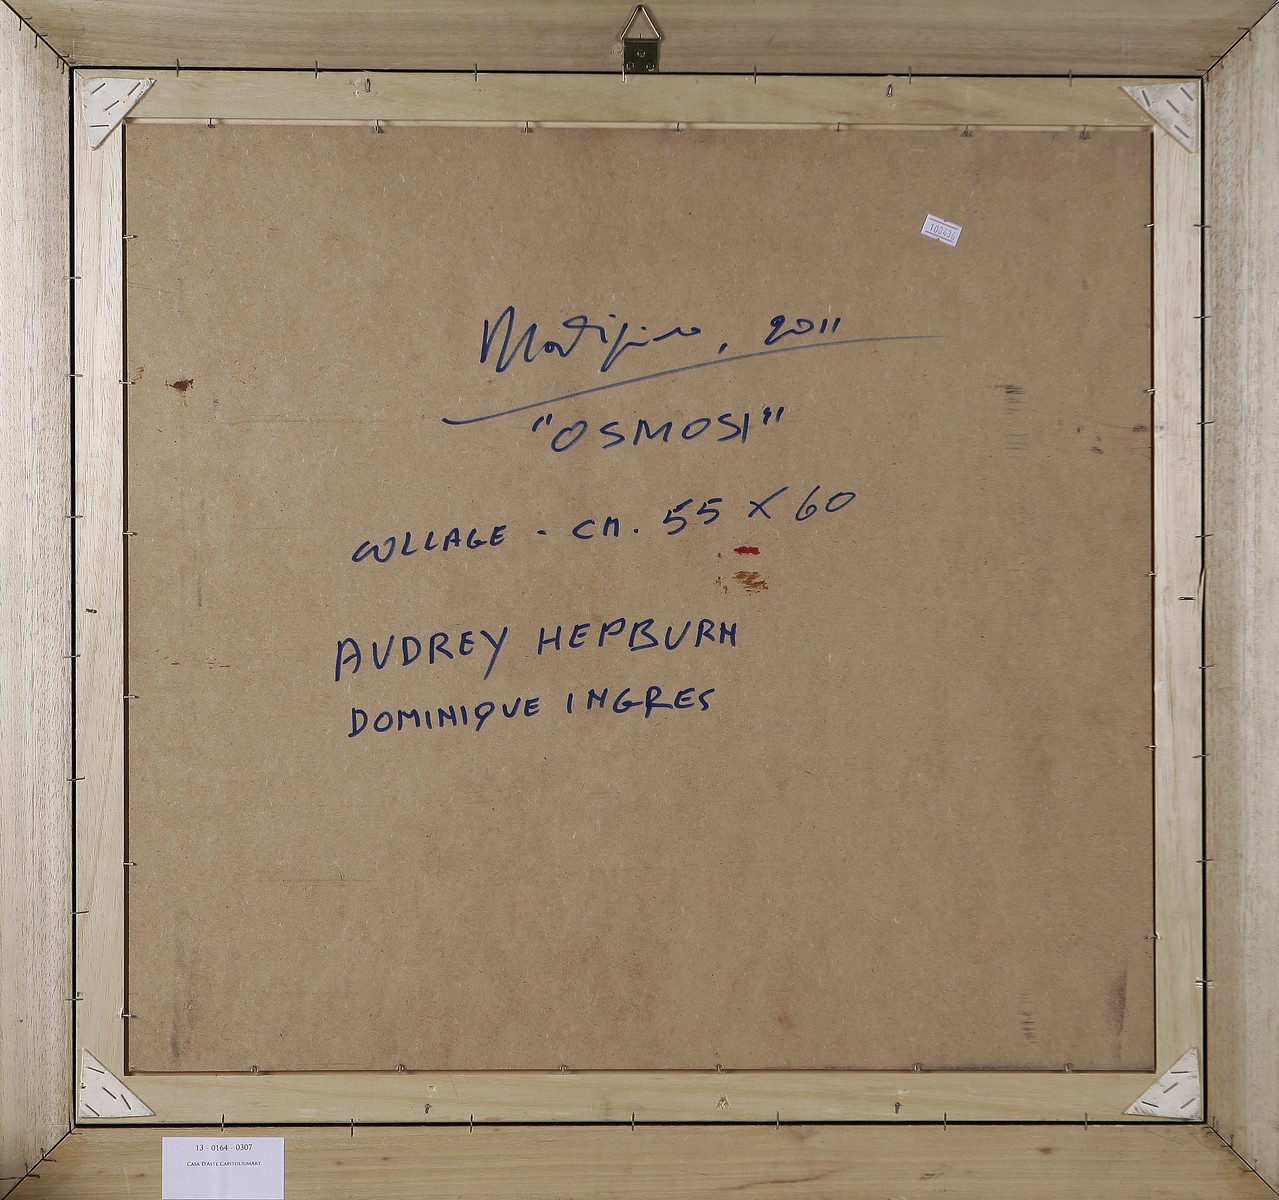 108436
, 2011
"OSMOSI"
COLLAGE - CM. 55 X 60
AUDREY HEPBURN
DOMINIQUE INGRES
13 - 0164 - 0307
CASA D'ASTE CAPITOLIUMART